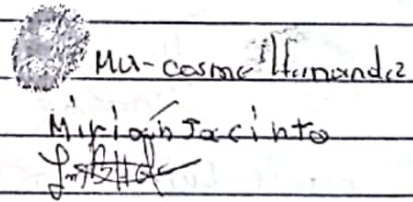 Ma-cosme Hernandez
Miriam Jacinto